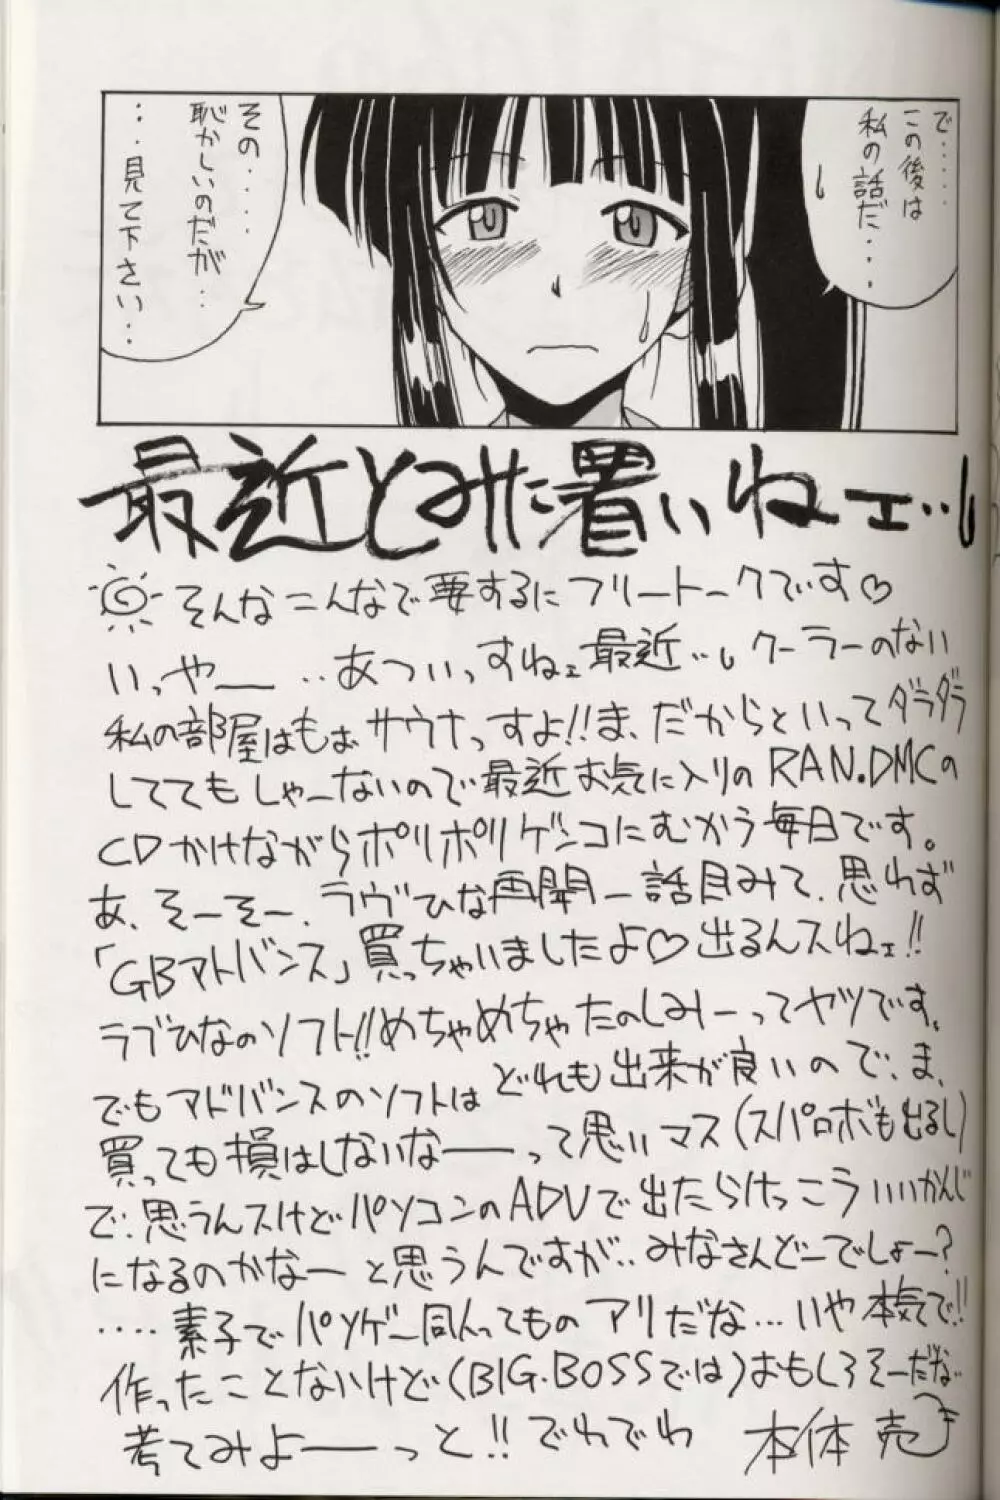 で‥‥‥
この後は
私の話だ・・・
その‥‥‥
恥かしいのだが‥
・・・見て下さい・・
最近とみに暑いねェ‥
そんなこんなで要するにフリートークです♡
いっやー ‥あついっすねェ最近‥クーラーのない
私の部屋はもぉサウナっすよ!!ま、だからといってダラダラ
しててもしゃーないので最近お気に入りのRAN.DMCの
CDかけながらポリポリゲンコにむかう毎日です。
あ、そーそー、ラヴひな再開一話目みて、思わず
「GBアトバンス」買っちゃいましたよ♡出るんスねェ!!
ラブひなのソフト!!めちゃめちゃたのしみーってヤツです。
でもアドバンスのソフトはどれも出来が良いので、ま、
買っても損はしないなーって思いマス(スパロボも出るし)
で、思うんスけどパソコンのADVで出たらけっこういいかんじ
になるのかなーと思うんですが‥みなさんどーでしょー?
‥‥素子でパソゲー同人ってものアリだな…いや本気で!!
作ったことないけど(BIG.BOSSでは)おもしろそーだな
考えてみよーっと!!でわでわ 本体 売